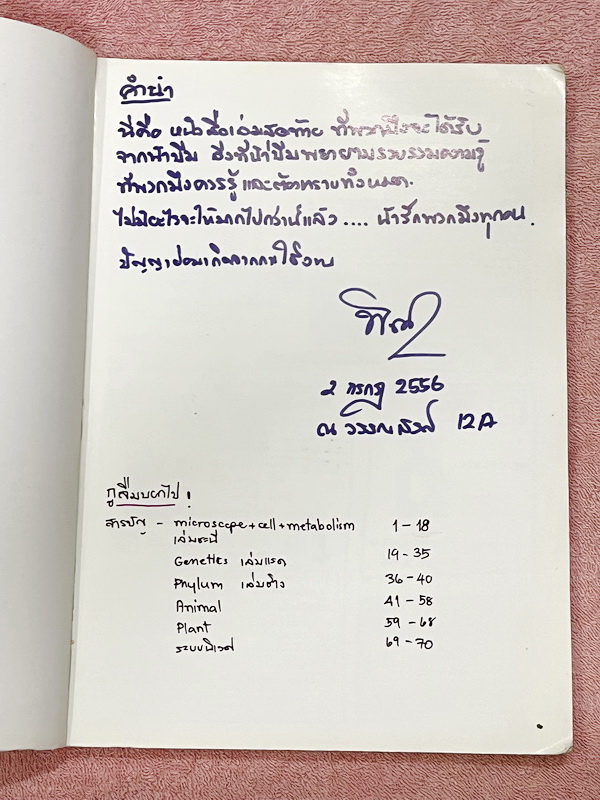 คำนำ
นี่คือ หนังสือเล่มสุดท้าย ที่พวกมึงจะได้รับ
จากน้าปืม ซึ่งที่น้าปืมพยายามรวบรวมความรู้
ที่พวกมึงควรรู้ และต้องทราบทั้งหมด.
ไม่มีอะไรจะให้มากไปกว่านี้แล้ว .... น้ารักพวกมึงทุกคน.
ปัญญาย่อมเกิดจากการใช้งาน
2 กรกฎ 2556
ณ วรรณสรณ์ 12A
กูลืมบอกไป !
สารบัญ - microscope + cell + metabolism 1 - 18
Genetics เล่มแรด 19 - 35
Phylum เล่มช้าง 36 - 40
Animal 41 - 58
Plant 59 - 68
ระบบนิเวศ 69 - 70